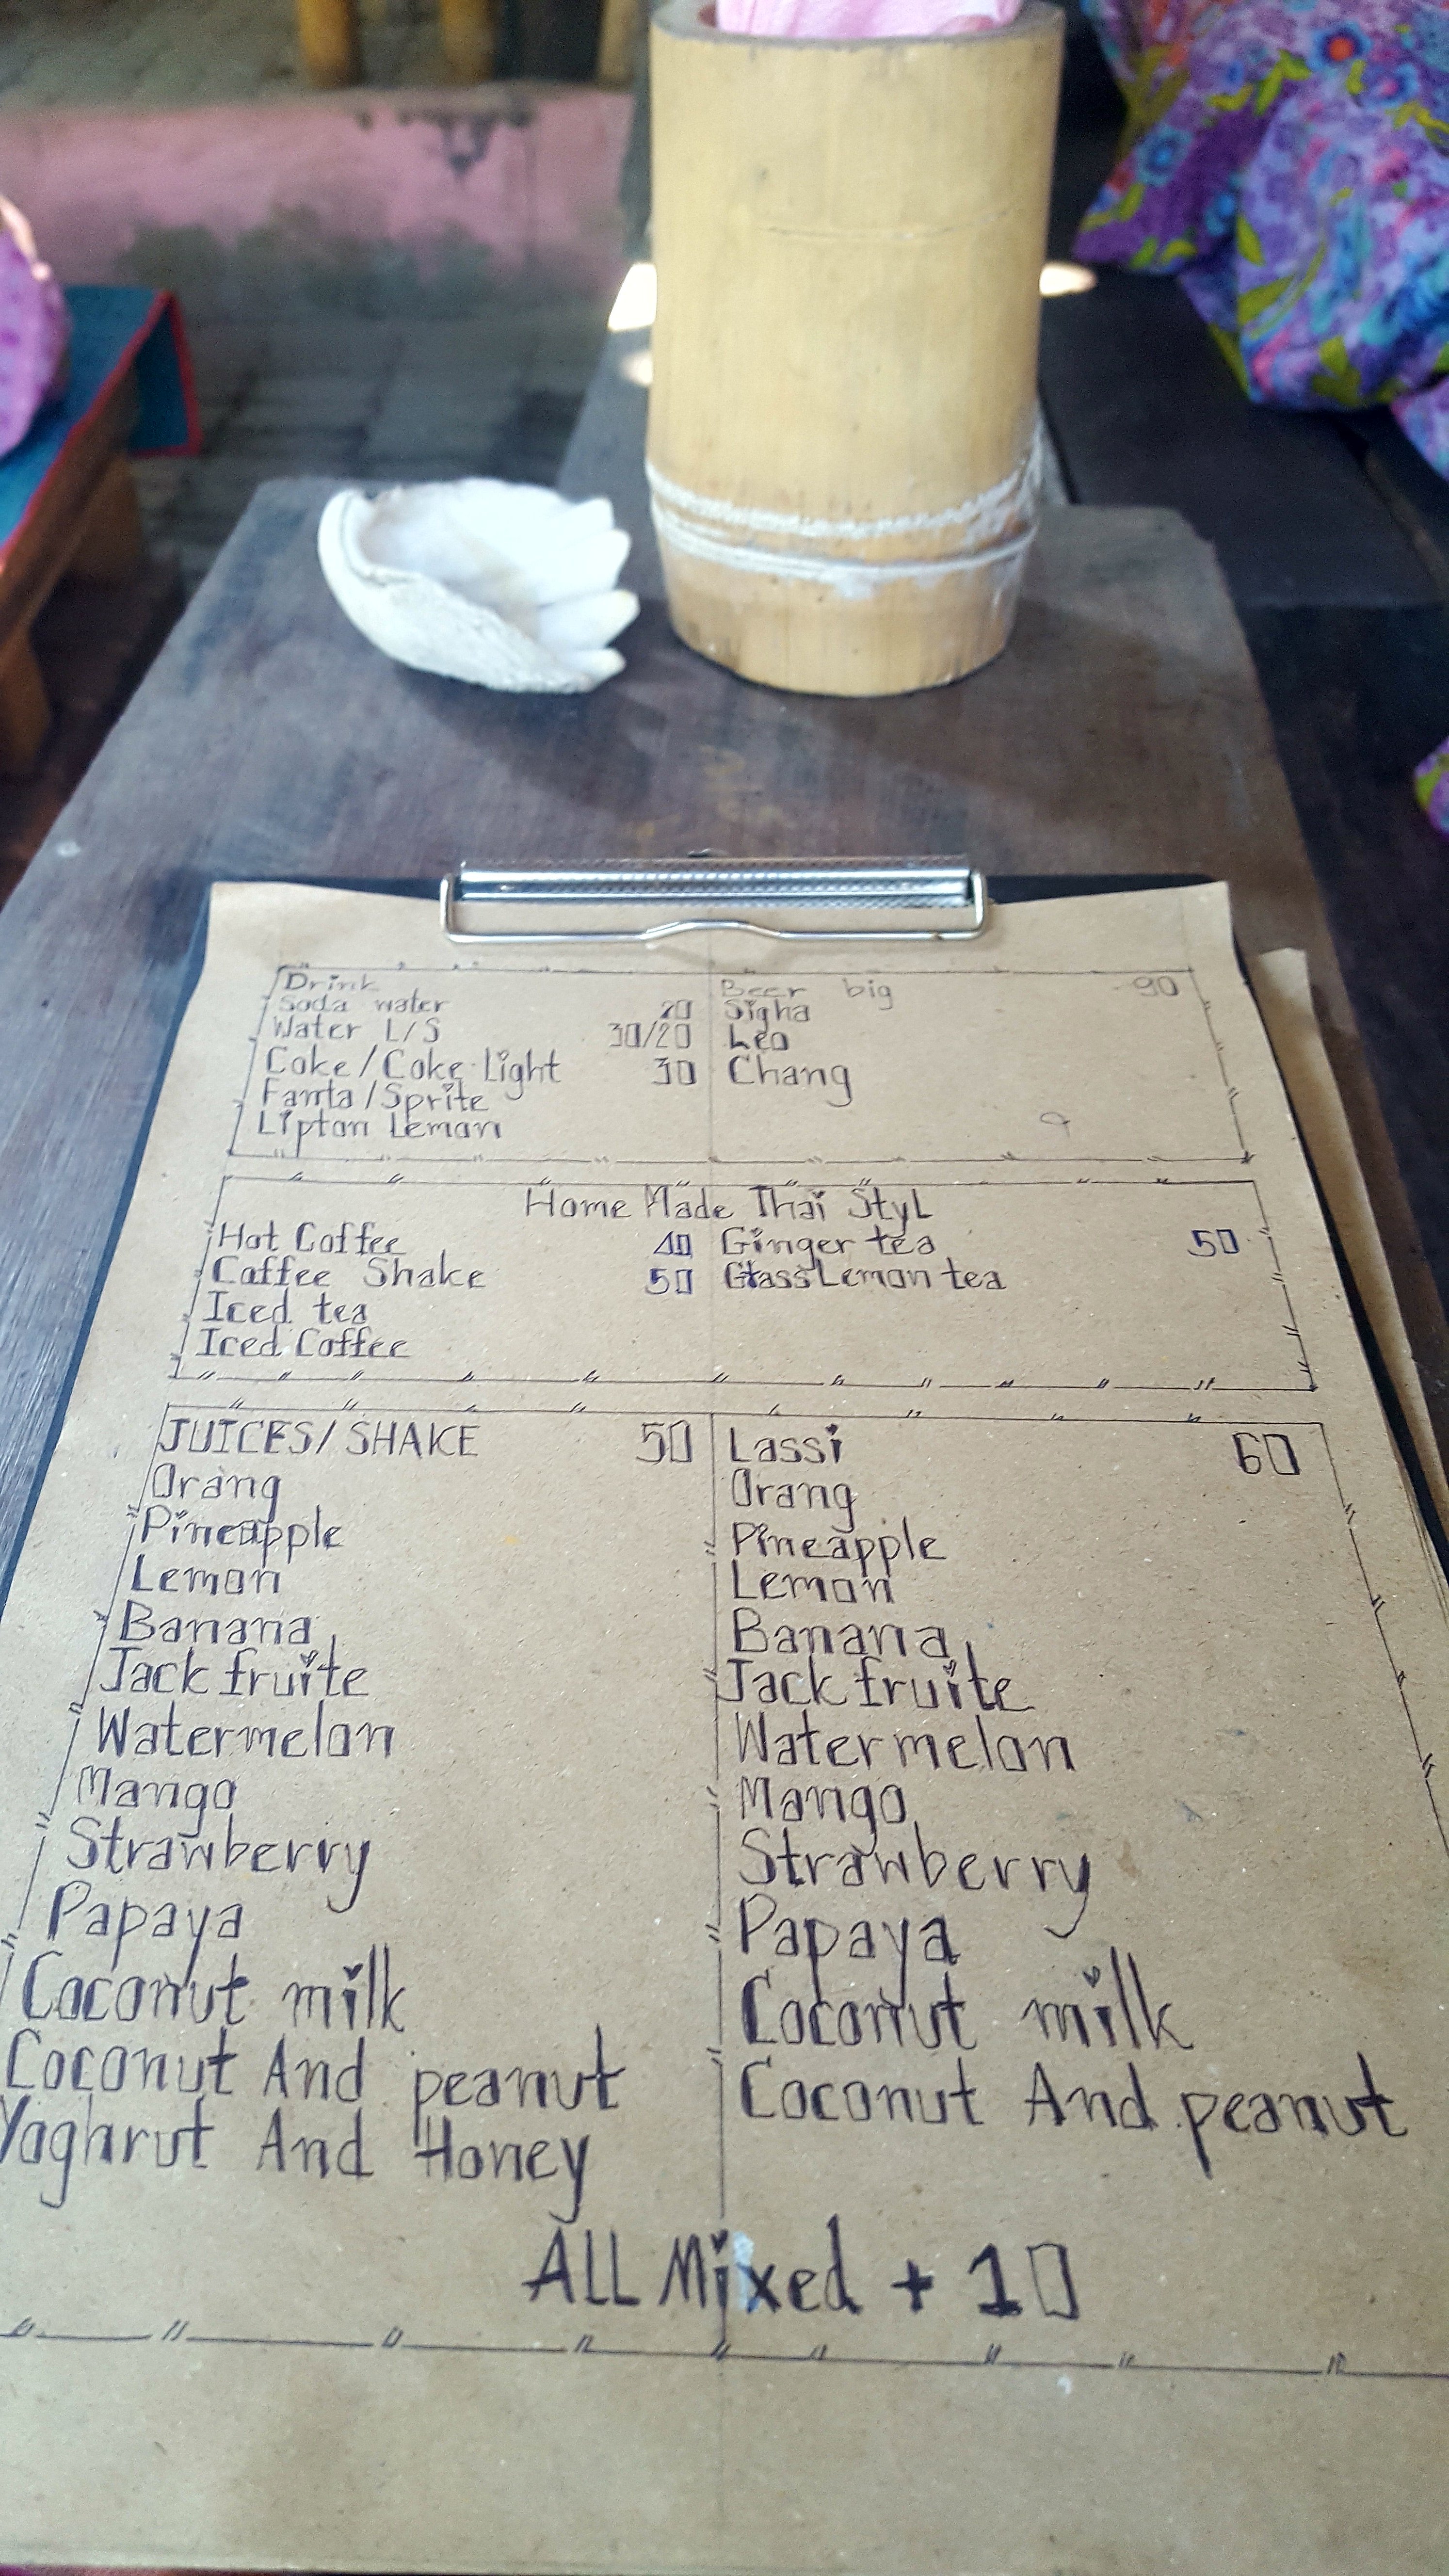 Drink
Soda water 20
Water L/S 30/20
Coke/Coke Light 30
Fanta/Sprite
Lipton Lemon
Beer big 90
Sigha
Leo
Chang
Home Made Thai Styl
Hot Coffee 40
Coffee Shake 50
Iced tea
Iced Coffee
Ginger tea 50
Glass Lemon tea
JUICES/SHAKE 50
Orang
Pineapple
Lemon
Banana
Jack fruite
Watermelon
Mango
Strawberry
Papaya
Coconut milk
Coconut And peanut
Yoghrut And Honey
Lassi 60
Orang
Pineapple
Lemon
Banana
Jack fruite
Watermelon
Mango
Strawberry
Papaya
Coconut milk
Coconut And peanut
ALL Mixed + 10